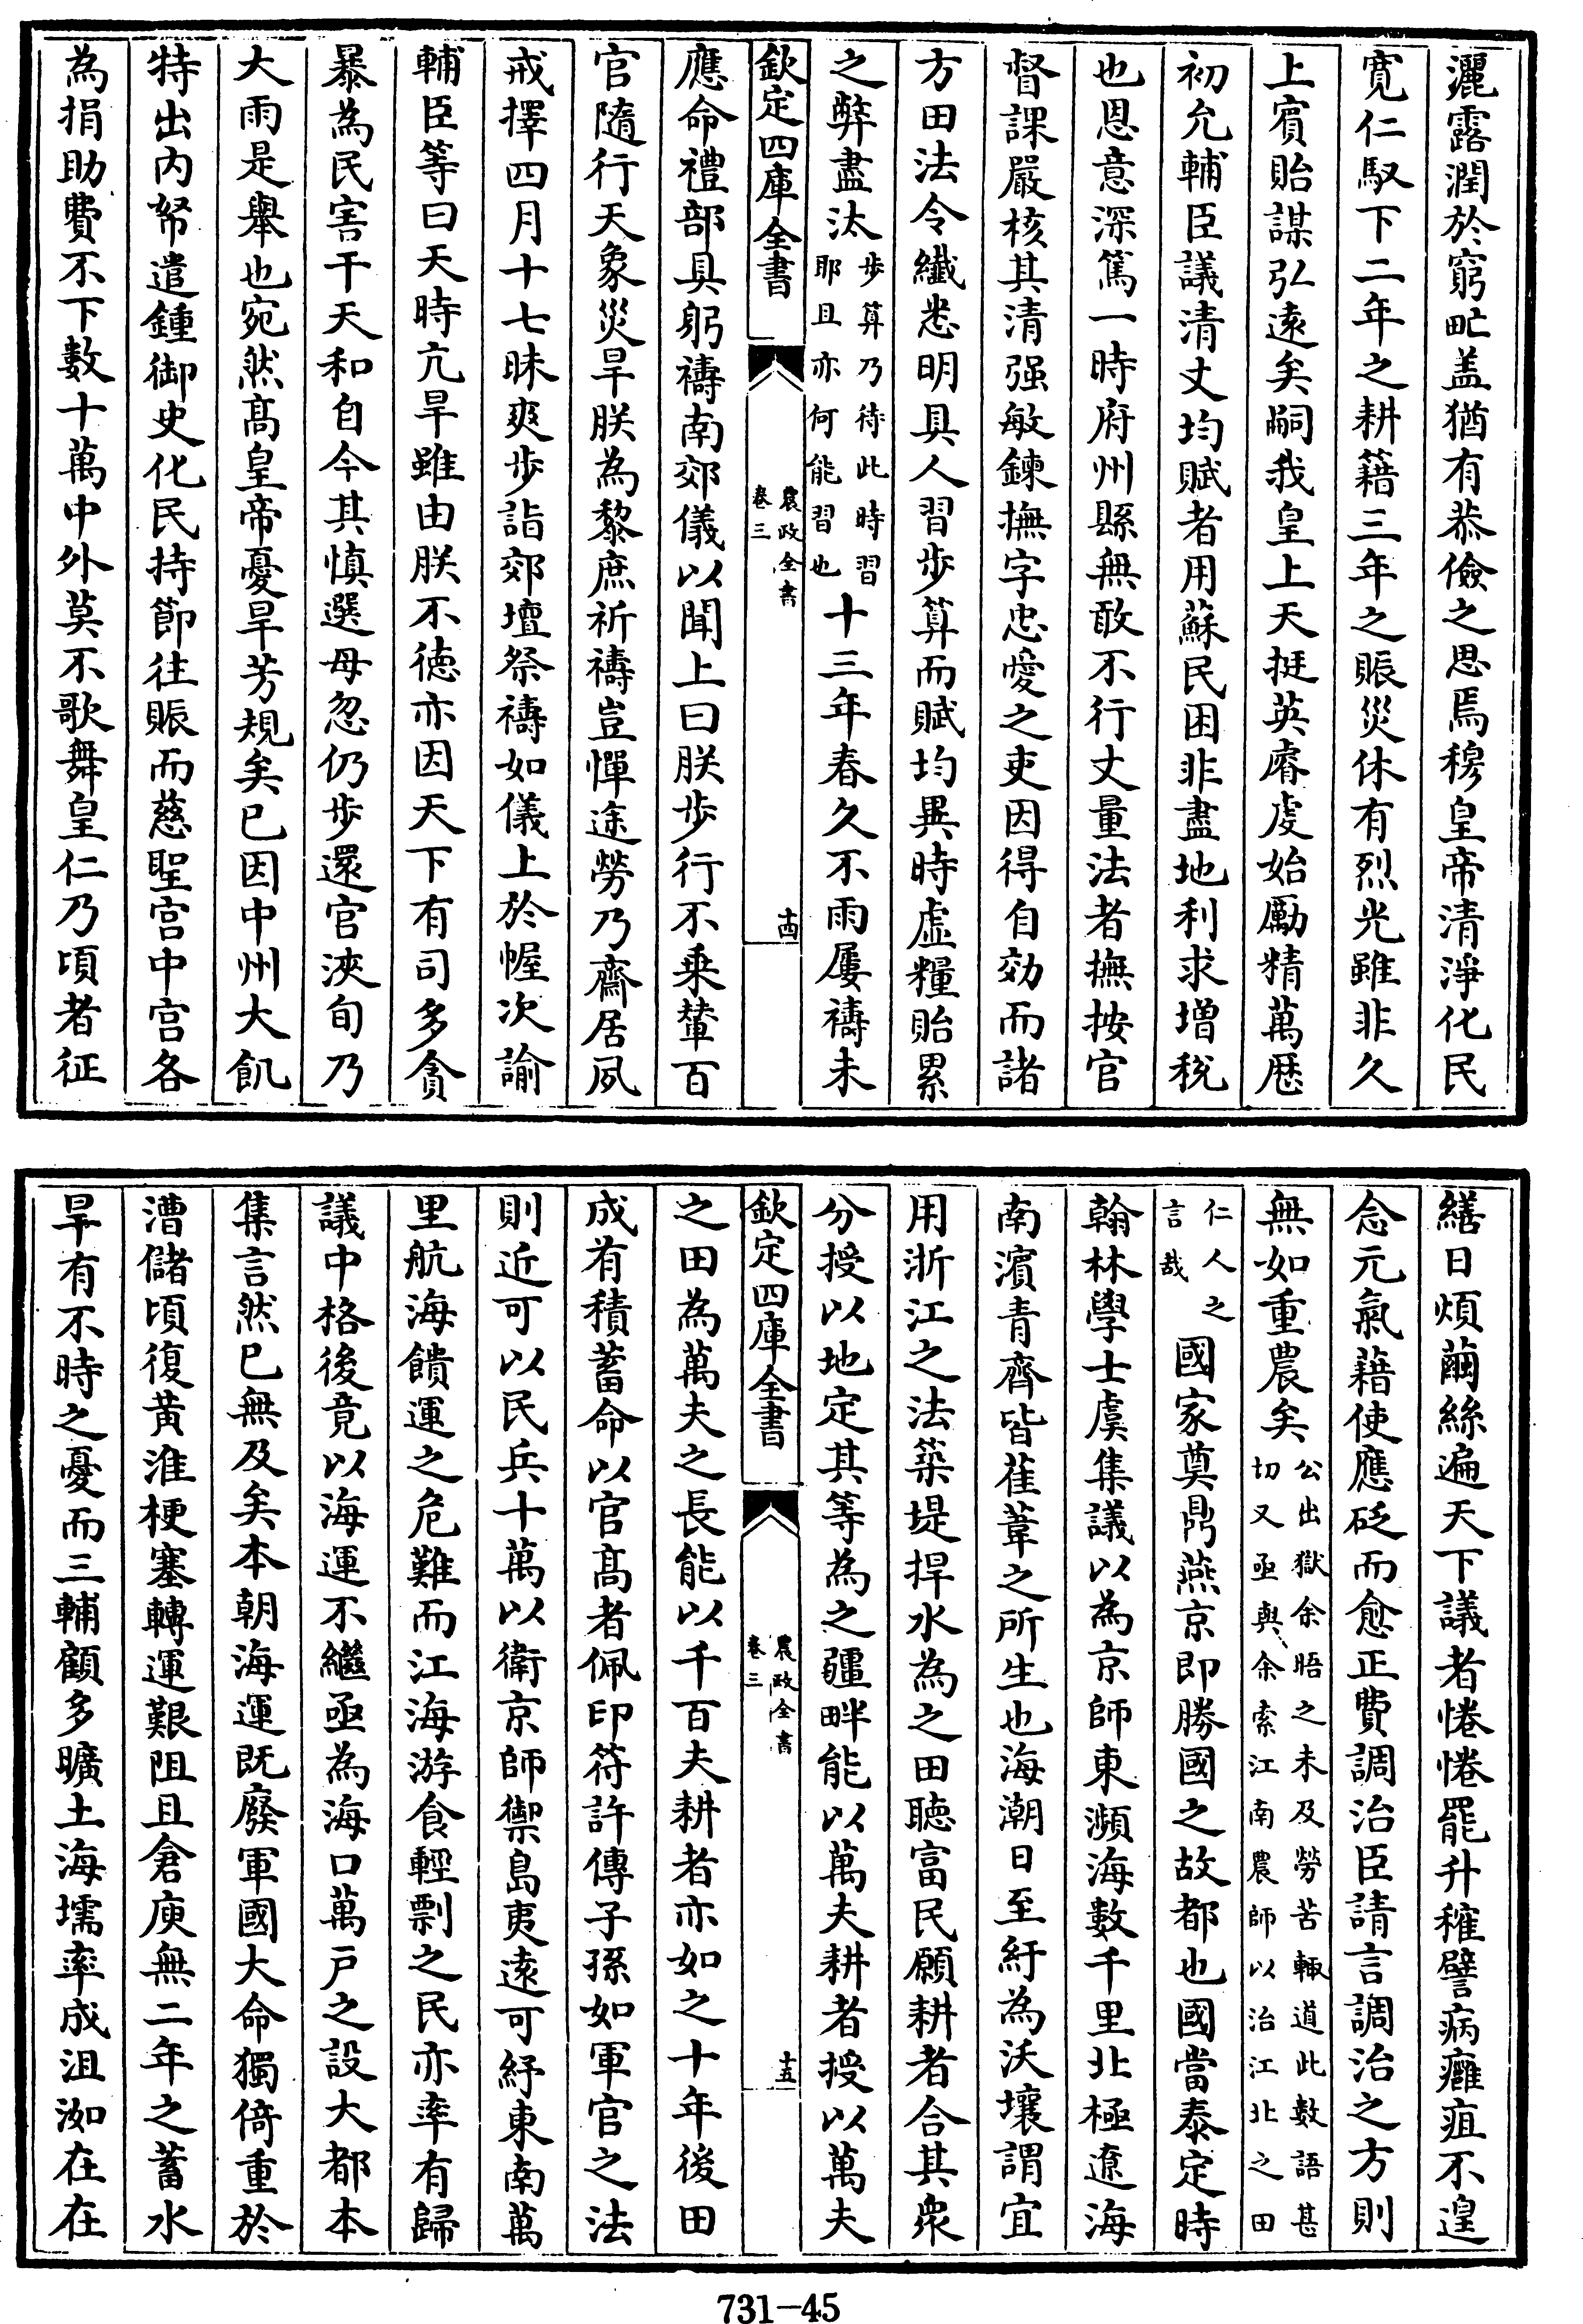 灑露潤於窮甿盖猶有恭儉之思焉穆皇帝清淨化民
寛仁馭下二年之耕藉三年之賑災休有烈光雖非久
上賓貽謀弘遠矣嗣我皇上天挺英睿虔始勵精萬歴
初允輔臣議清丈均賦者用蘇民困非盡地利求増税
也恩意深篤一時府州縣無敢不行丈量法者撫按官
督課嚴核其清强敏鍊撫字忠愛之吏因得自効而諸
方田法令纖悉明具人習步算而賦均異時虛糧貽累
之弊盡汰步算乃待此時習
耶且亦何能習也十三年春久不雨屢禱未
欽定四庫全書
農政全書
卷三
十四
應命禮部具躬禱南郊儀以聞上曰朕步行不乗輦百
官隨行天象災旱朕為黎庶祈禱豈憚途勞乃齋居夙
戒擇四月十七昧爽步詣郊壇祭禱如儀上於幄次諭
輔臣等曰天時亢旱雖由朕不徳亦因天下有司多貪
暴為民害干天和自今其慎選毋忽仍步還宫浹旬乃
大雨是舉也宛然髙皇帝憂旱芳規矣已因中州大飢
特出内帑遣鍾御史化民持節往賑而慈聖宫中宫各
為捐助費不下數十萬中外莫不歌舞皇仁乃頃者征
繕日煩繭絲遍天下議者惓惓罷升𣙜譬病癰疽不遑
念元氣藉使應砭而愈正費調治臣請言調治之方則
無如重農矣公出獄余晤之未及勞苦輙道此數語甚
切又亟與余索江南農師以治江北之田
仁人之
言哉國家奠鼎燕京即勝國之故都也國當泰定時
翰林學士虞集議以為京師東瀕海數千里北極遼海
南濱青齊皆萑葦之所生也海潮日至紆為沃壤謂宜
用浙江之法築堤捍水為之田聴富民願耕者合其衆
分授以地定其等為之疆畔能以萬夫耕者授以萬夫
欽定四庫全書
農政全書
卷三
十五
之田為萬夫之長能以千百夫耕者亦如之十年後田
成有積蓄命以官髙者佩印符許傳子孫如軍官之法
則近可以民兵十萬以衛京師禦島夷遠可紓東南萬
里航海饋運之危難而江海游食輕剽之民亦率有歸
議中格後竟以海運不繼亟為海口萬戸之設大都本
集言然已無及矣本朝海運既廢軍國大命獨倚重於
漕儲頃復黄淮梗塞轉運艱阻且倉庾無二年之蓄水
旱有不時之憂而三輔顧多曠土海壖率成沮洳在在
731-45